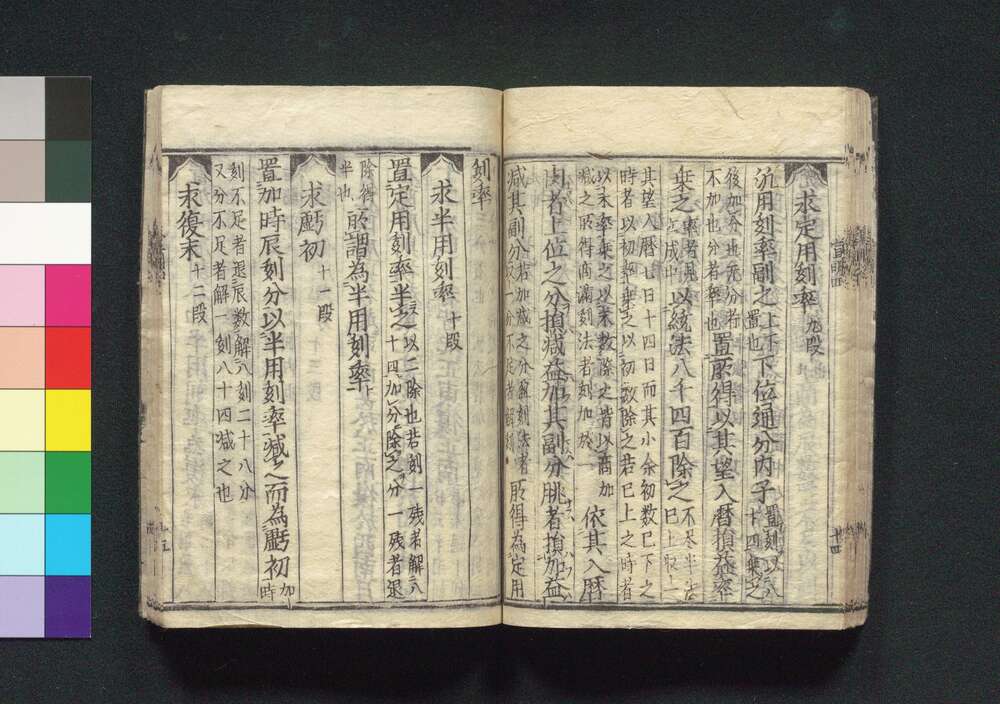 求定用刻率 九段
汎用刻率副之 上下置也 下位通分内子 置刻以八十四乗之
後加分也元分者不加也分者率也 置所得以其望入暦損益率
乗之 以統法八千四百除之 不尽半法已上収上
其望入暦七日十四日而其小余初数已下之
時者以初率乗之以初数除之若已上之時者
以末率乗之以末数除之皆以商加
減之所得商満刻法者刻加於一 依其入暦
上位之分損減益加其副分朓者損加益
減其副分 所得為定用
刻率
求半用刻率 十段
置定用刻率半之 以二除也若刻一残者解八十四加分除之分一残者退
除得半也 所謂為半用刻率
求虧初 十一段
置加時辰刻分以半用刻率減之而為虧初 加時
刻不足者退辰数解八刻二十八分
又分不足者解一刻八十四減之也
求復末 十二段